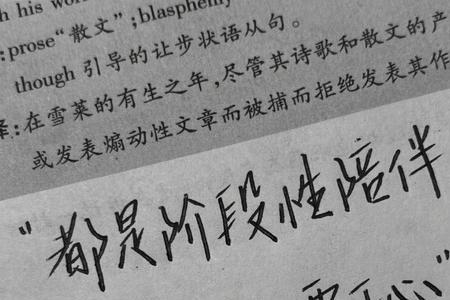 his
:prose“散文”;blasphemy
though 引导的让步状语从句。
译:在雪莱的有生之年,尽管其诗歌和散文的产
或发表煽动性文章而被捕而拒绝发表其作
“都是阶段性陪伴
”